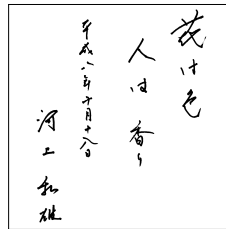 花は色
人は香り
平成八年十月十八日
河上和雄